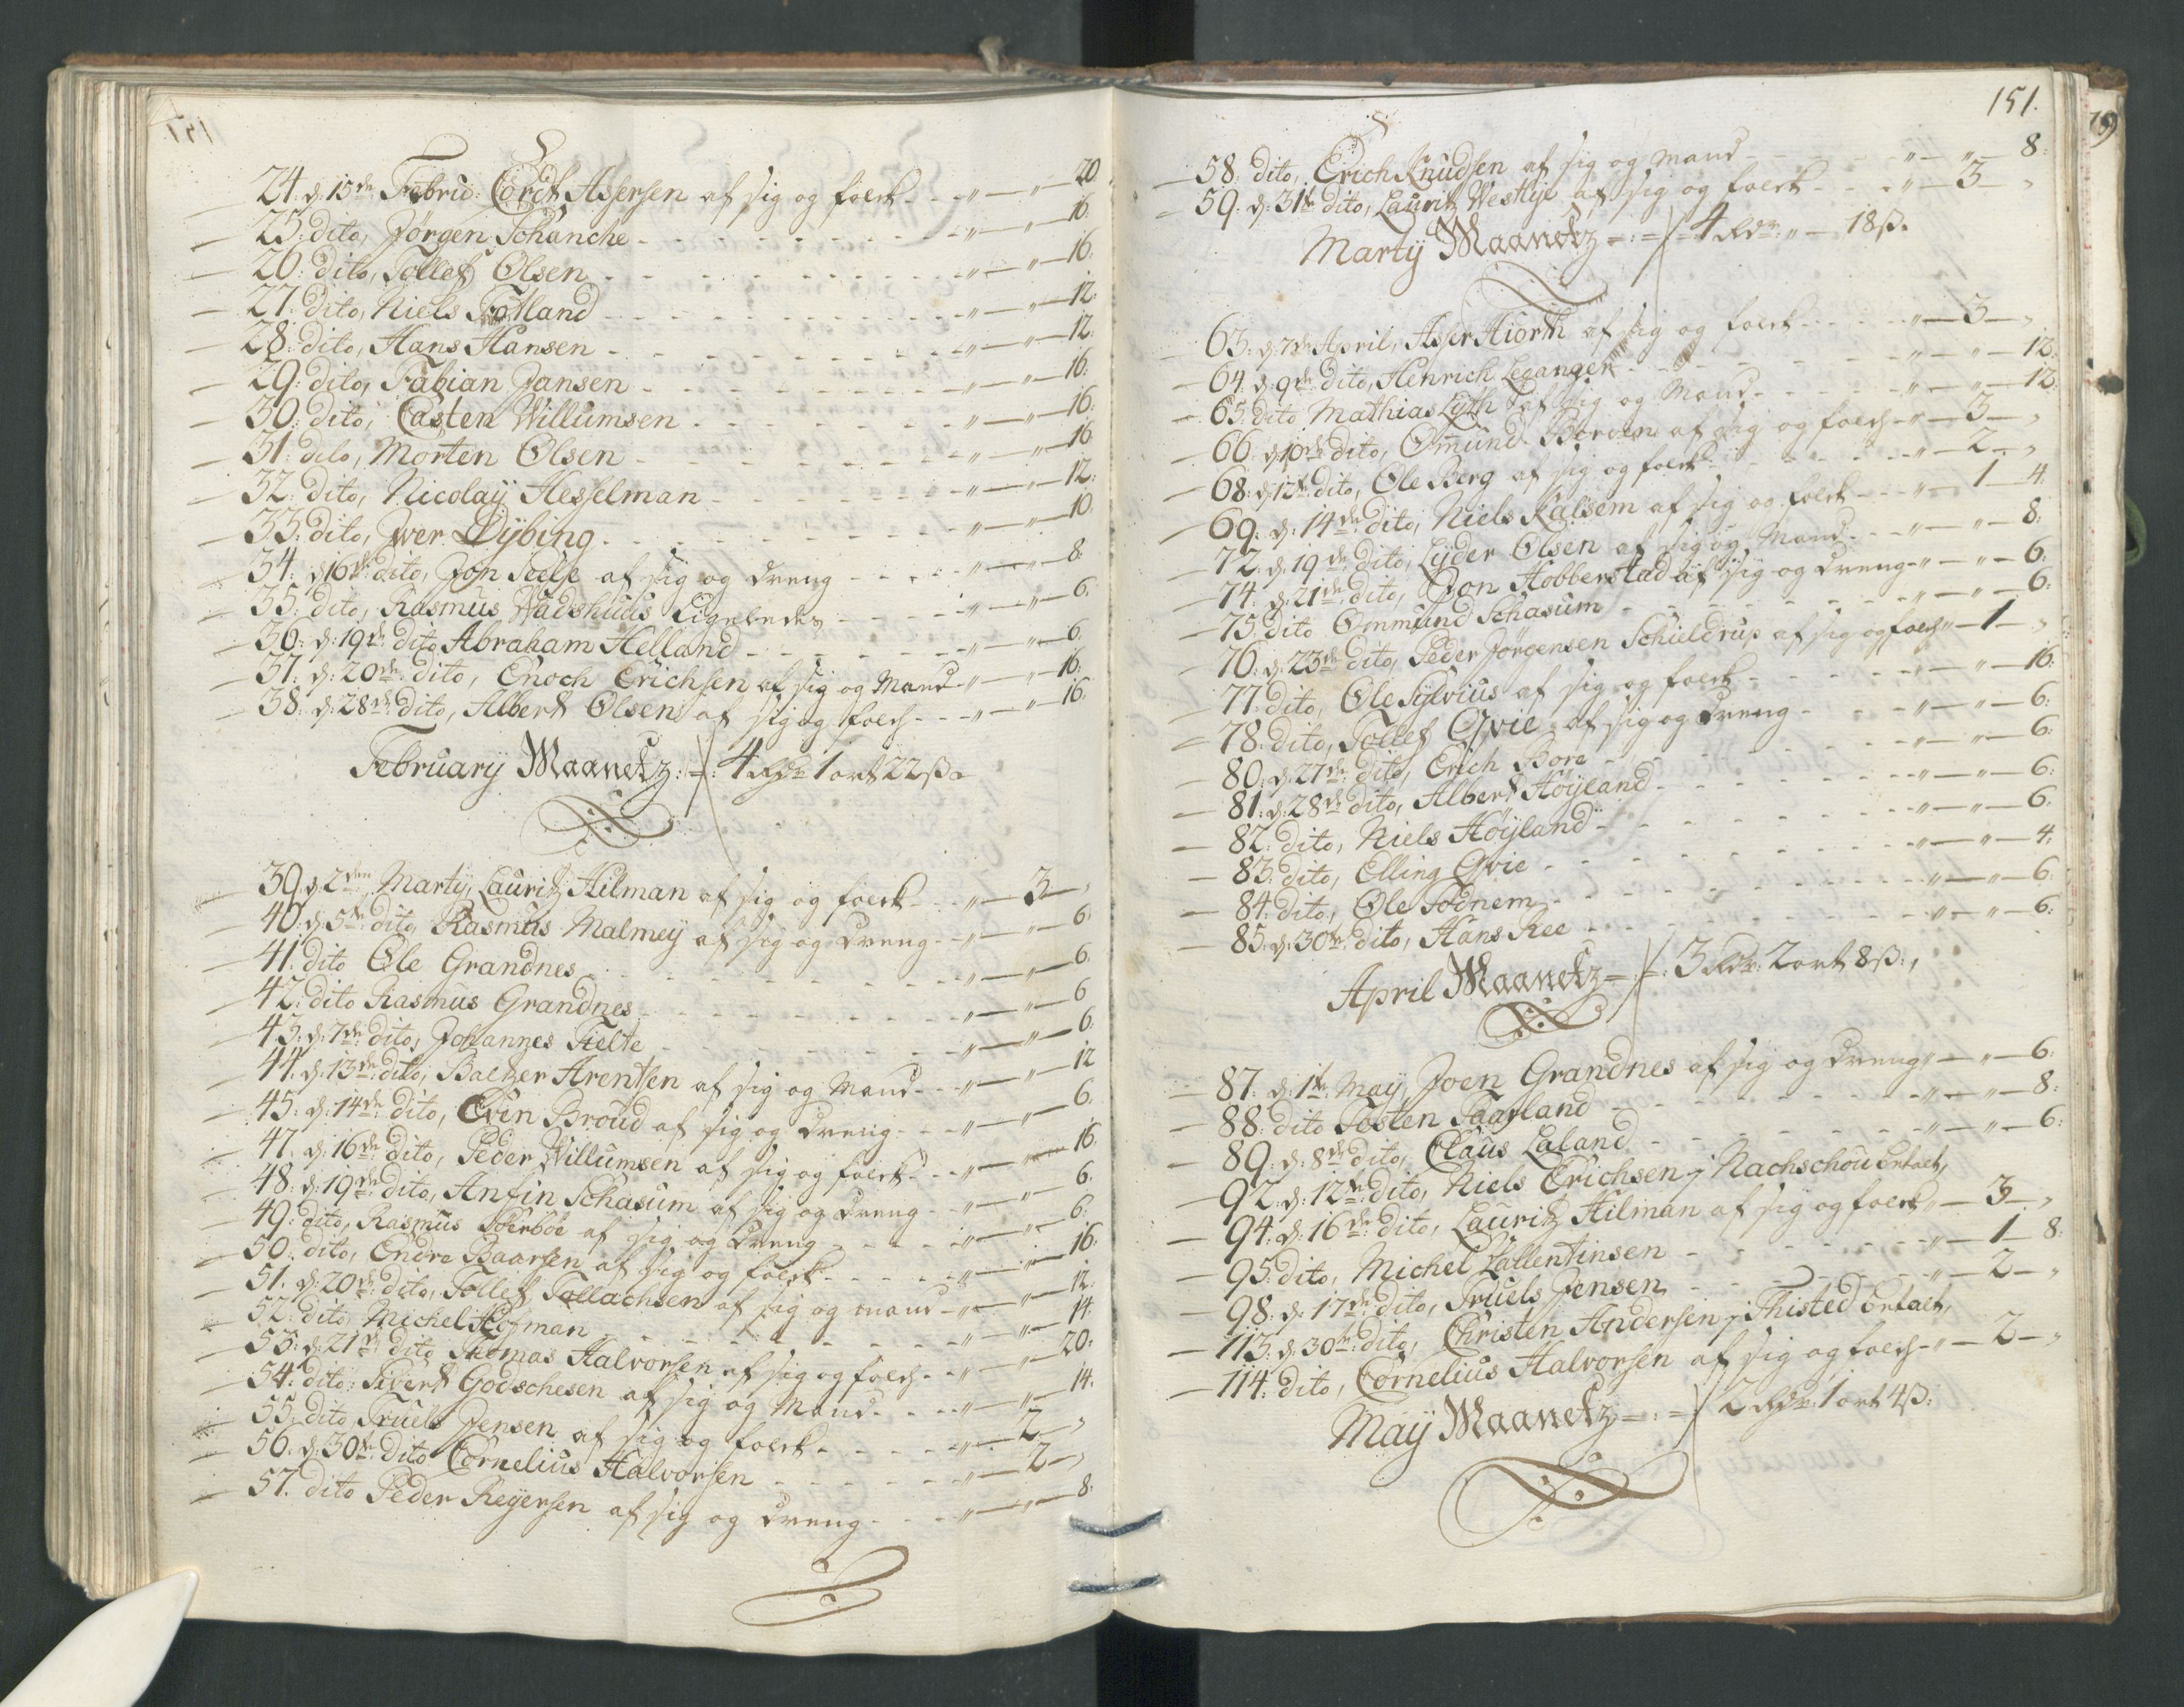 24. d. 15de Febru: Cordt Assersen af sig og folck - - " — " — 20
25: dito, Jørgen Schanche - - " — " — 16:
26: dito, Tollef Olsen - - " — " — 16:
27: dito, Niels Fotland - - " — " — 12:
28: dito, Hans Hansen - - " — " — 12:
29: dito, Fabian Jansen - - " — " — 16:
30: dito, Casten Willumsen - - " — " — 16:
31: dito, Morten Olsen - - " — " — 16
32: dito, Nicolaÿ Hesselman - - " — " — 12:
33: dito, Iver Dÿbing - - " — " — 10
34: d. 16de dito, Jon Seelse af sig og dreng - - " — " — 8:
35: dito, Rasmus Wadshuus ligeledes - - " — " — 6:
36: d: 19de dito Abraham Helland - - " — " — 6:
37: d: 20de dito, Enoch Erichsen af sig og Mand - - " — " — 16:
38: d: 28de dito, Albert Olsen af sig og folch - - " — " — 16
Februarÿ Maanetz: 4 Rdr 1 ort 22 ß
39. d. 2den Martÿ, Lauritz Hilman af sig og folck - - " — 3 — "
40. d: 5te dito, Rasmus Malmeÿ af sig og dreng - - " — " — 6:
41. dito Ole Grandnes - - " — " — 6:
42: dito Rasmus Grandnes - - " — " — 6
43: d: 7de dito, Johannes Tielte - - " — " — 6:
44. d: 13de dito, Baltzer Arentsen af sig og Mand - - " — " — 12
45: d: 14de dito, Evin Broud af sig og dreng - - " — " — 6:
47. d: 16de dito, Peder Willumsen af sig og folck - - " — " — 16
48: d: 19de dito, Anfin Schasum af sig og dreng - - " — " — 6:
49: dito, Rasmus Soerboe af sig og dreng - - " — " — 6:
50: dito, Endre Baarsen af sig og folck - - " — " — 16:
51. d: 20de dito, Tollef Tollachsen af sig og mand - " — " — 12:
52: dito Michel Hofman - - " — " — 14
53: d: 21de dito Thomas Halvorsen af sig og folch - - " — " — 20:
54: dito: Sivert Godschesen af sig og Mand - - " — " — 14.
55: dito Truels Jensen af sig og folck - - " — 2 — "
56. d: 30te dito Cornelius Halvorsen - - " — 2 — "
57. dito Peder Reÿersen af sig og dreng - - " — " — 8:
151.
58: dito, Erich Knudsen af sig og Mand - - " — " — 8:
59. d: 31te dito, Lauritz Westlÿe af sig og folck - - " — 3 — "
Martÿ Maanetz 4 Rdr " — 18 ß.
63. d: 7de April, Asser Hiorth af sig og folck - - " — 3 — "
64. d: 9de dito, Henrich Leganger - - " — " — 12:
65: dito Mathias Lÿth af sig og Mand - - " — " — 12:
66: d. 10de dito, Ommund Borgen af sig og folch - " — 3 — "
68: d. 12te dito, Ole Berg af sig og folck - - " — 2 — "
69. d: 14de dito, Niels Kalsem af sig og folck - - " — 1 — 4.
72. d: 19de dito, Lÿder Olsen af sig og Mand - - " — " — 8:
74. d: 21de dito, Don Hobberstad af sig og dreng - " — " — 6:
75: dito Ommund Schasum - - " — " — 6:
76: d: 23de dito, Peder Jørgensen Schieldrup af sig og folch " — 1 — "
77: dito, Ole Sÿlvius af sig og folck - - " — " — 16:
78: dito, Tollef Qvie af sig og dreng - - " — " — 6:
80: d: 27de dito, Erich Bore - - " — " — 6:
81: d: 28de dito, Albert Høÿland - - " — " — 6:
82: dito, Niels Høÿland - - " — " — 6:
83: dito, Elling Qvie - - " — " — 4:
84: dito, Ole Todnem - - " — " — 6:
85: d: 30te dito, Hans Ree - - " — " — 6:
April Maanetz 3 Rdr: 2 ort 8 ß:,
87: d: 1te Maÿ, Joen Grandnes af sig og dreng " — " — 6:
88: dito Tosten Taarland - - " — " — 8:
89: d: 8de dito, Claus Laland - - " — " — 6:
92: d: 12te dito, Niels Erichsen j Nachschou betalt,
94: d: 16de dito, Lauritz Hilman af sig og folck " — 3 — "
95: dito, Michel Lallentinsen - - " — 1 — 8:
98: d: 17de dito, Truels Jensen - - " — 2 — "
113: d: 30te dito, Christen Andersen j Thisted betalt,
114: dito, Cornelius Halvorsen af sig og folch - " — 2 — "
Maÿ Maanetz 2 Rdr: 1 ort 4 ß: